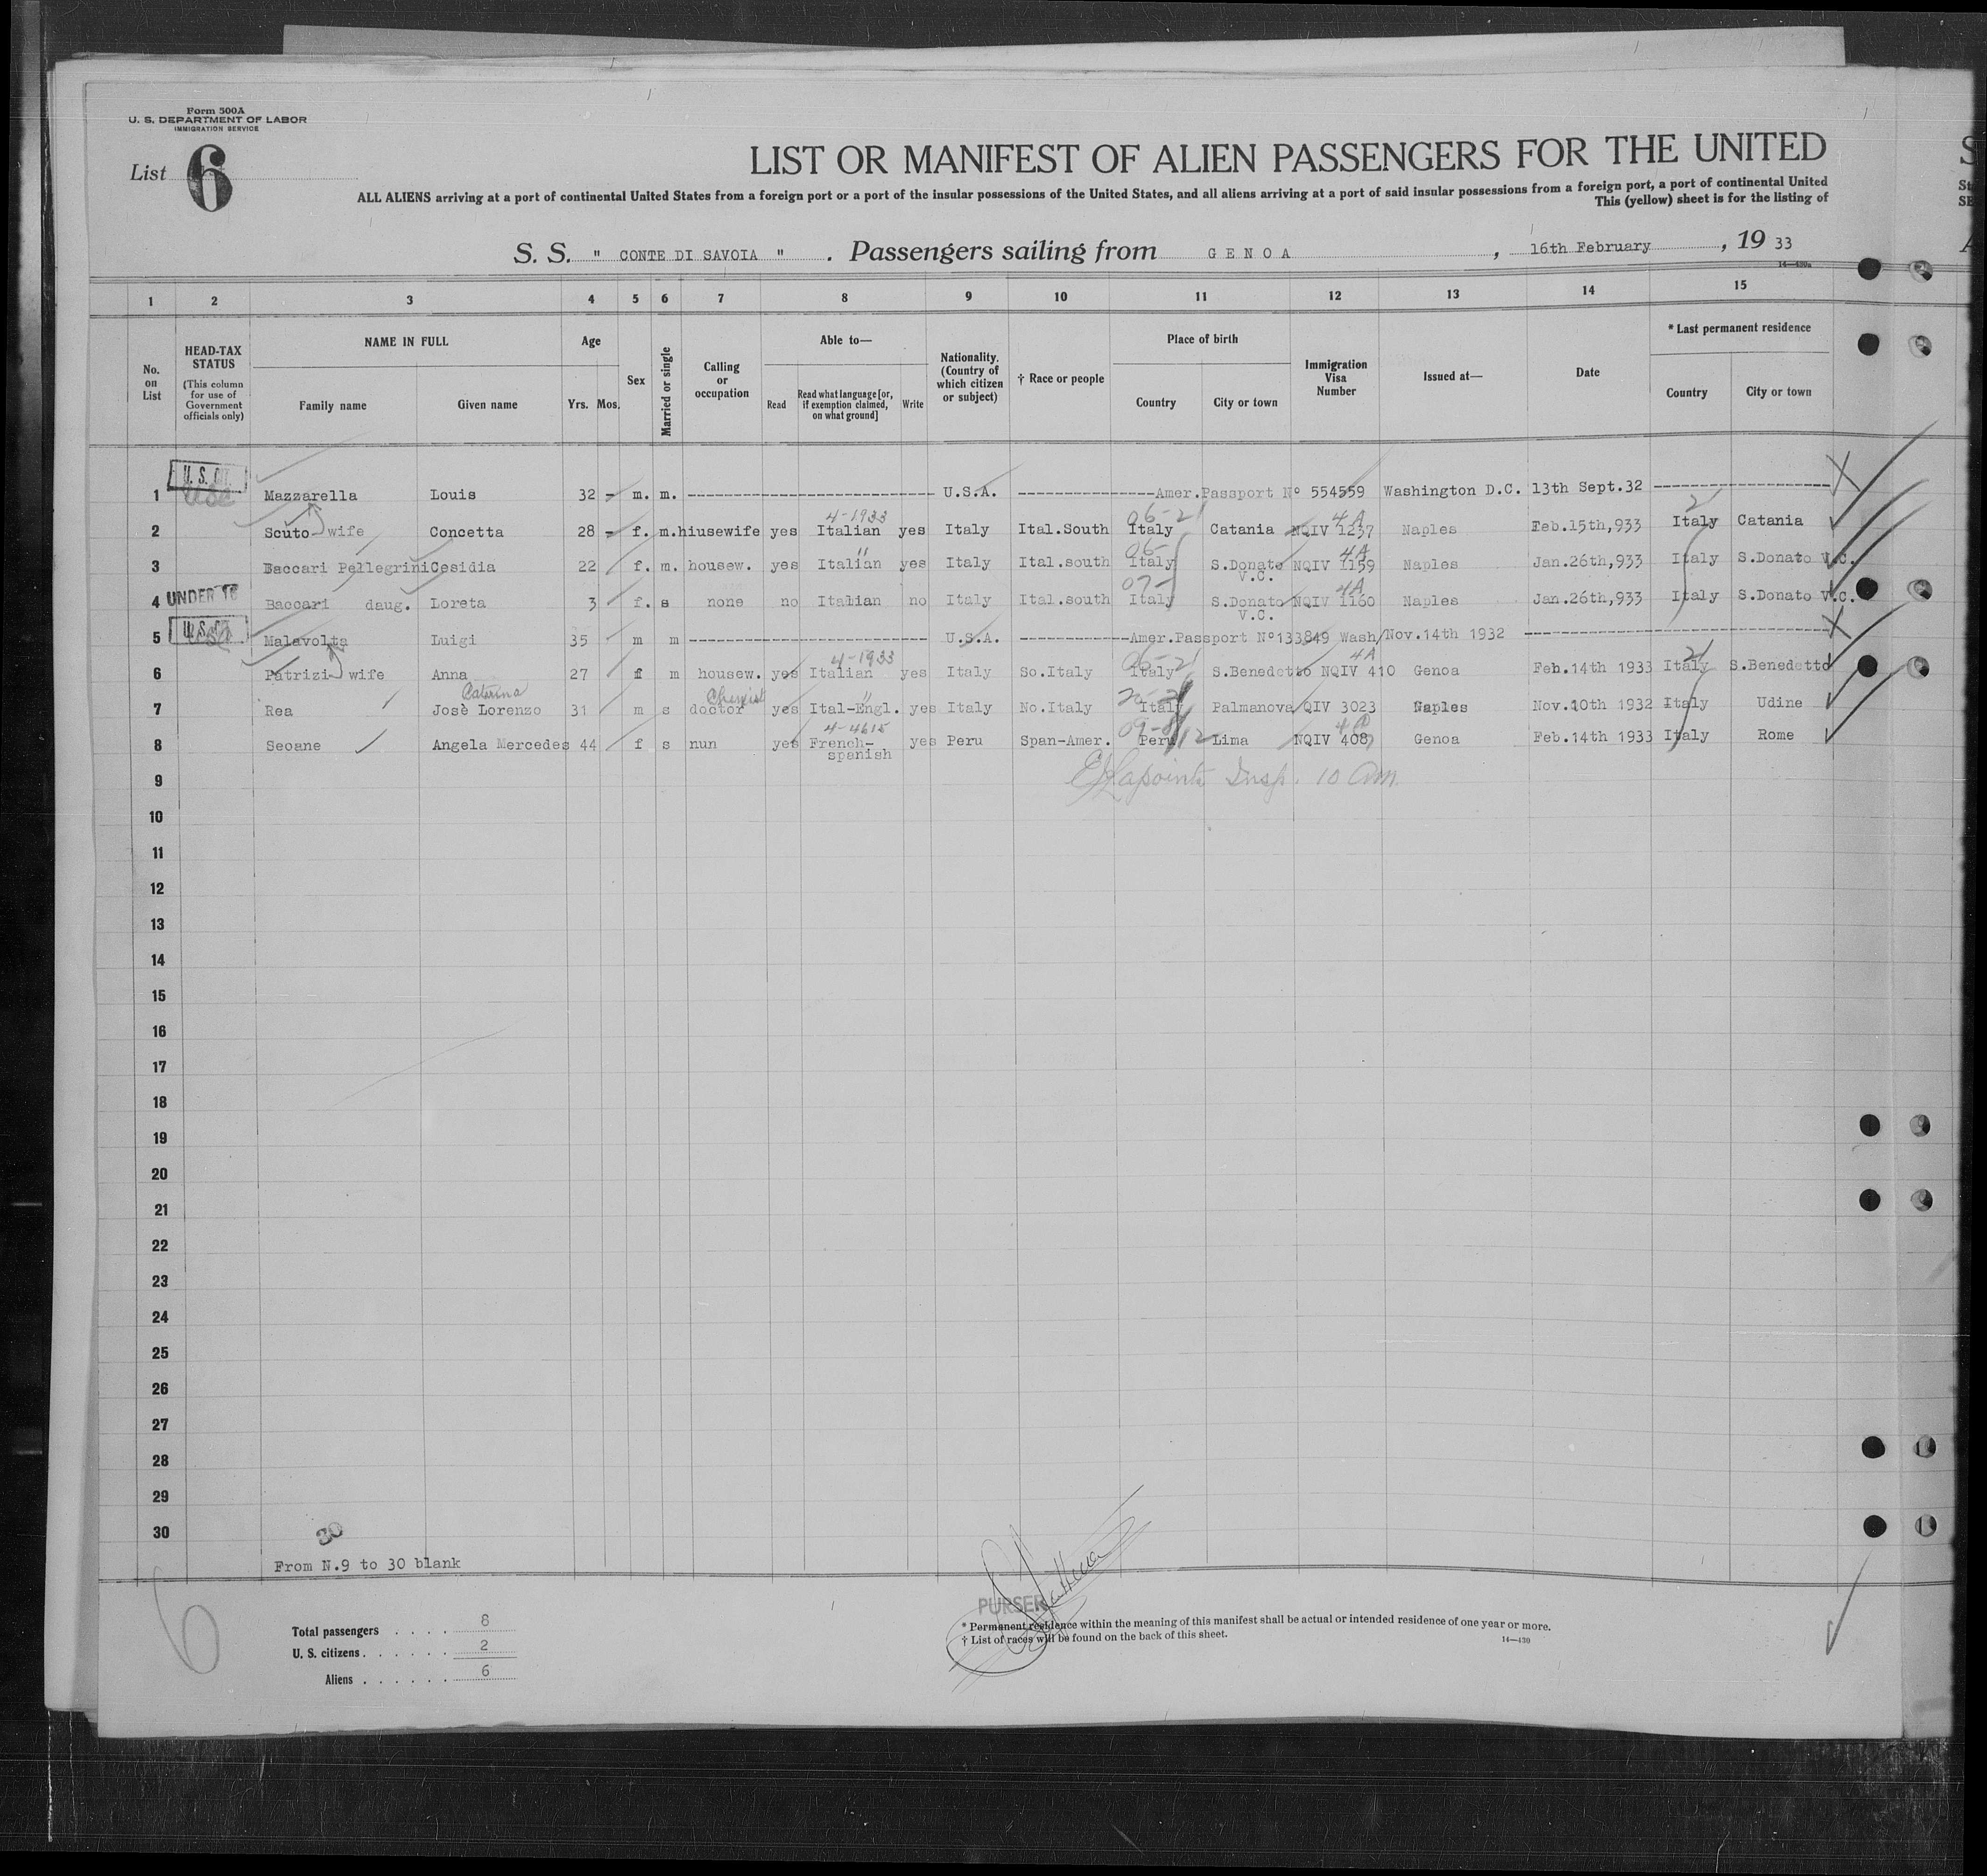 Form 500A
U. S. DEPARTMENT OF LABOR
IMMIGRATION SERVICE
List 6
LIST OR MANIFEST OF ALIEN PASSENGERS FOR THE UNITED
ALL ALIENS arriving at a port of continental United States from a foreign port or a port of the insular possessions of the United States, and all aliens arriving at a port of said insular possessions from a foreign port, a port of continental United
This (yellow) sheet is for the listing of
S. S. " CONTE DI SAVOIA " . Passengers sailing from GENOA , 16th February , 19 33
14—430a
1 2 3 4 5 6 7 8 9 10 11 12 13 14 15
No. on List
HEAD-TAX STATUS (This column for use of Government officials only)
NAME IN FULL
Family name Given name
Age
Yrs. Mos.
Sex
Married or single
Calling or occupation
Able to—
Read Read what language [or, if exemption claimed, on what ground] Write
Nationality. (Country of which citizen or subject)
† Race or people
Place of birth
Country City or town
Immigration Visa Number
Issued at—
Date
* Last permanent residence
Country City or town
1 U. S. CIT. Mazzarella Louis 32 - m. m. ---------- U.S.A. ---------- Amer.Passport Nº 554559 Washington D.C. 13th Sept.32 ---------- X
4-1933 06-21 4A 21
2 Scuto wife Concetta 28 - f. m. hiusewife yes Italian yes Italy Ital.South Italy Catania NQIV 1237 Naples Feb.15th,933 Italy Catania
" 06- 4A
3 Baccari Pellegrini Cesidia 22 f. m. housew. yes Italian yes Italy Ital.south Italy S.Donato V.C. NQIV 1159 Naples Jan.26th,933 Italy S.Donato V.C.
07- 4A
4 UNDER 16 Baccari daug. Loreta 3 f. s none no Italian no Italy Ital.south Italy S.Donato V.C. NQIV 1160 Naples Jan.26th,933 Italy S.Donato V.C.
5 U. S. CIT. Malavolta Luigi 35 m m ---------- U.S.A. ---------- Amer.Passport Nº133849 Wash/Nov.14th 1932 ---------- X
4-1933 06-21 4A 21
6 Patrizi wife Anna 27 f m housew. yes Italian yes Italy So.Italy Italy S.Benedetto NQIV 410 Genoa Feb.14th 1933 Italy S.Benedetto
Caterina Chemist "
7 Rea Josè Lorenzo 31 m s doctor yes Ital-Engl. yes Italy No.Italy Italy Palmanova QIV 3023 Naples Nov.10th 1932 Italy Udine
4-4615
8 Seoane Angela Mercedes 44 f s nun yes French-spanish yes Peru Span-Amer. Peru Lima NQIV 408 Genoa Feb.14th 1933 Italy Rome
9 Lapointe Insp. 10 Am.
10
11
12
13
14
15
16
17
18
19
20
21
22
23
24
25
26
27
28
29
30
30
From N.9 to 30 blank
6
Total passengers . . . . 8
U. S. citizens . . . . . . 2
Aliens . . . . . . 6
PURSER
* Permanent residence within the meaning of this manifest shall be actual or intended residence of one year or more.
† List of races will be found on the back of this sheet.
14—430